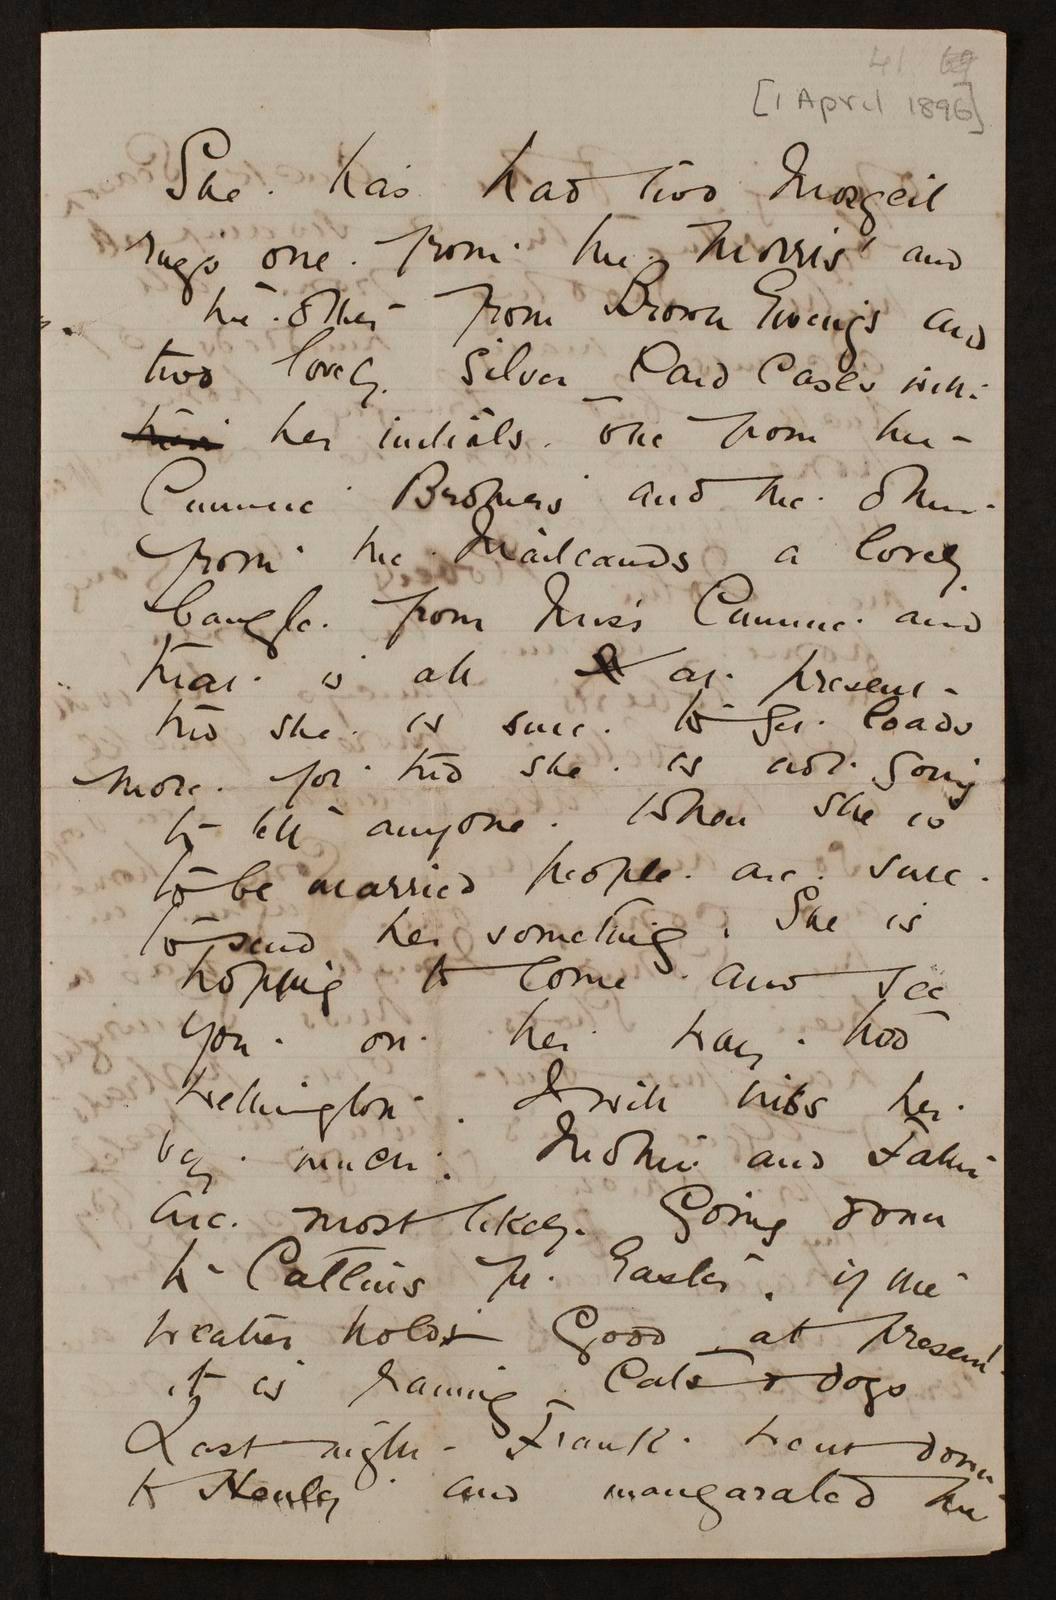 41 69
[1 April 1896]
She has had two Mozgeil
rugs one from the Morris' and
the other from Brown Ewings and
two lovely Silver Card Cases with
their her initials. One from the
Cummie Brothers and the other
from the Maitlands a lovely
bangle from Miss Cummie and
that is all at present
tho she is sure to get loads
more for tho she is not going
to tell anyone when she is
to be married people are sure
to send her something. She is
hopping to come and see
you on her way thro
Wellington. I will miss her
very much. Mother and Father
are most likely Going down
to Catlins for Easter, if the
weather holds Good at present
it is raining Cats & dogs
Last night Frank went down
to Henley and the